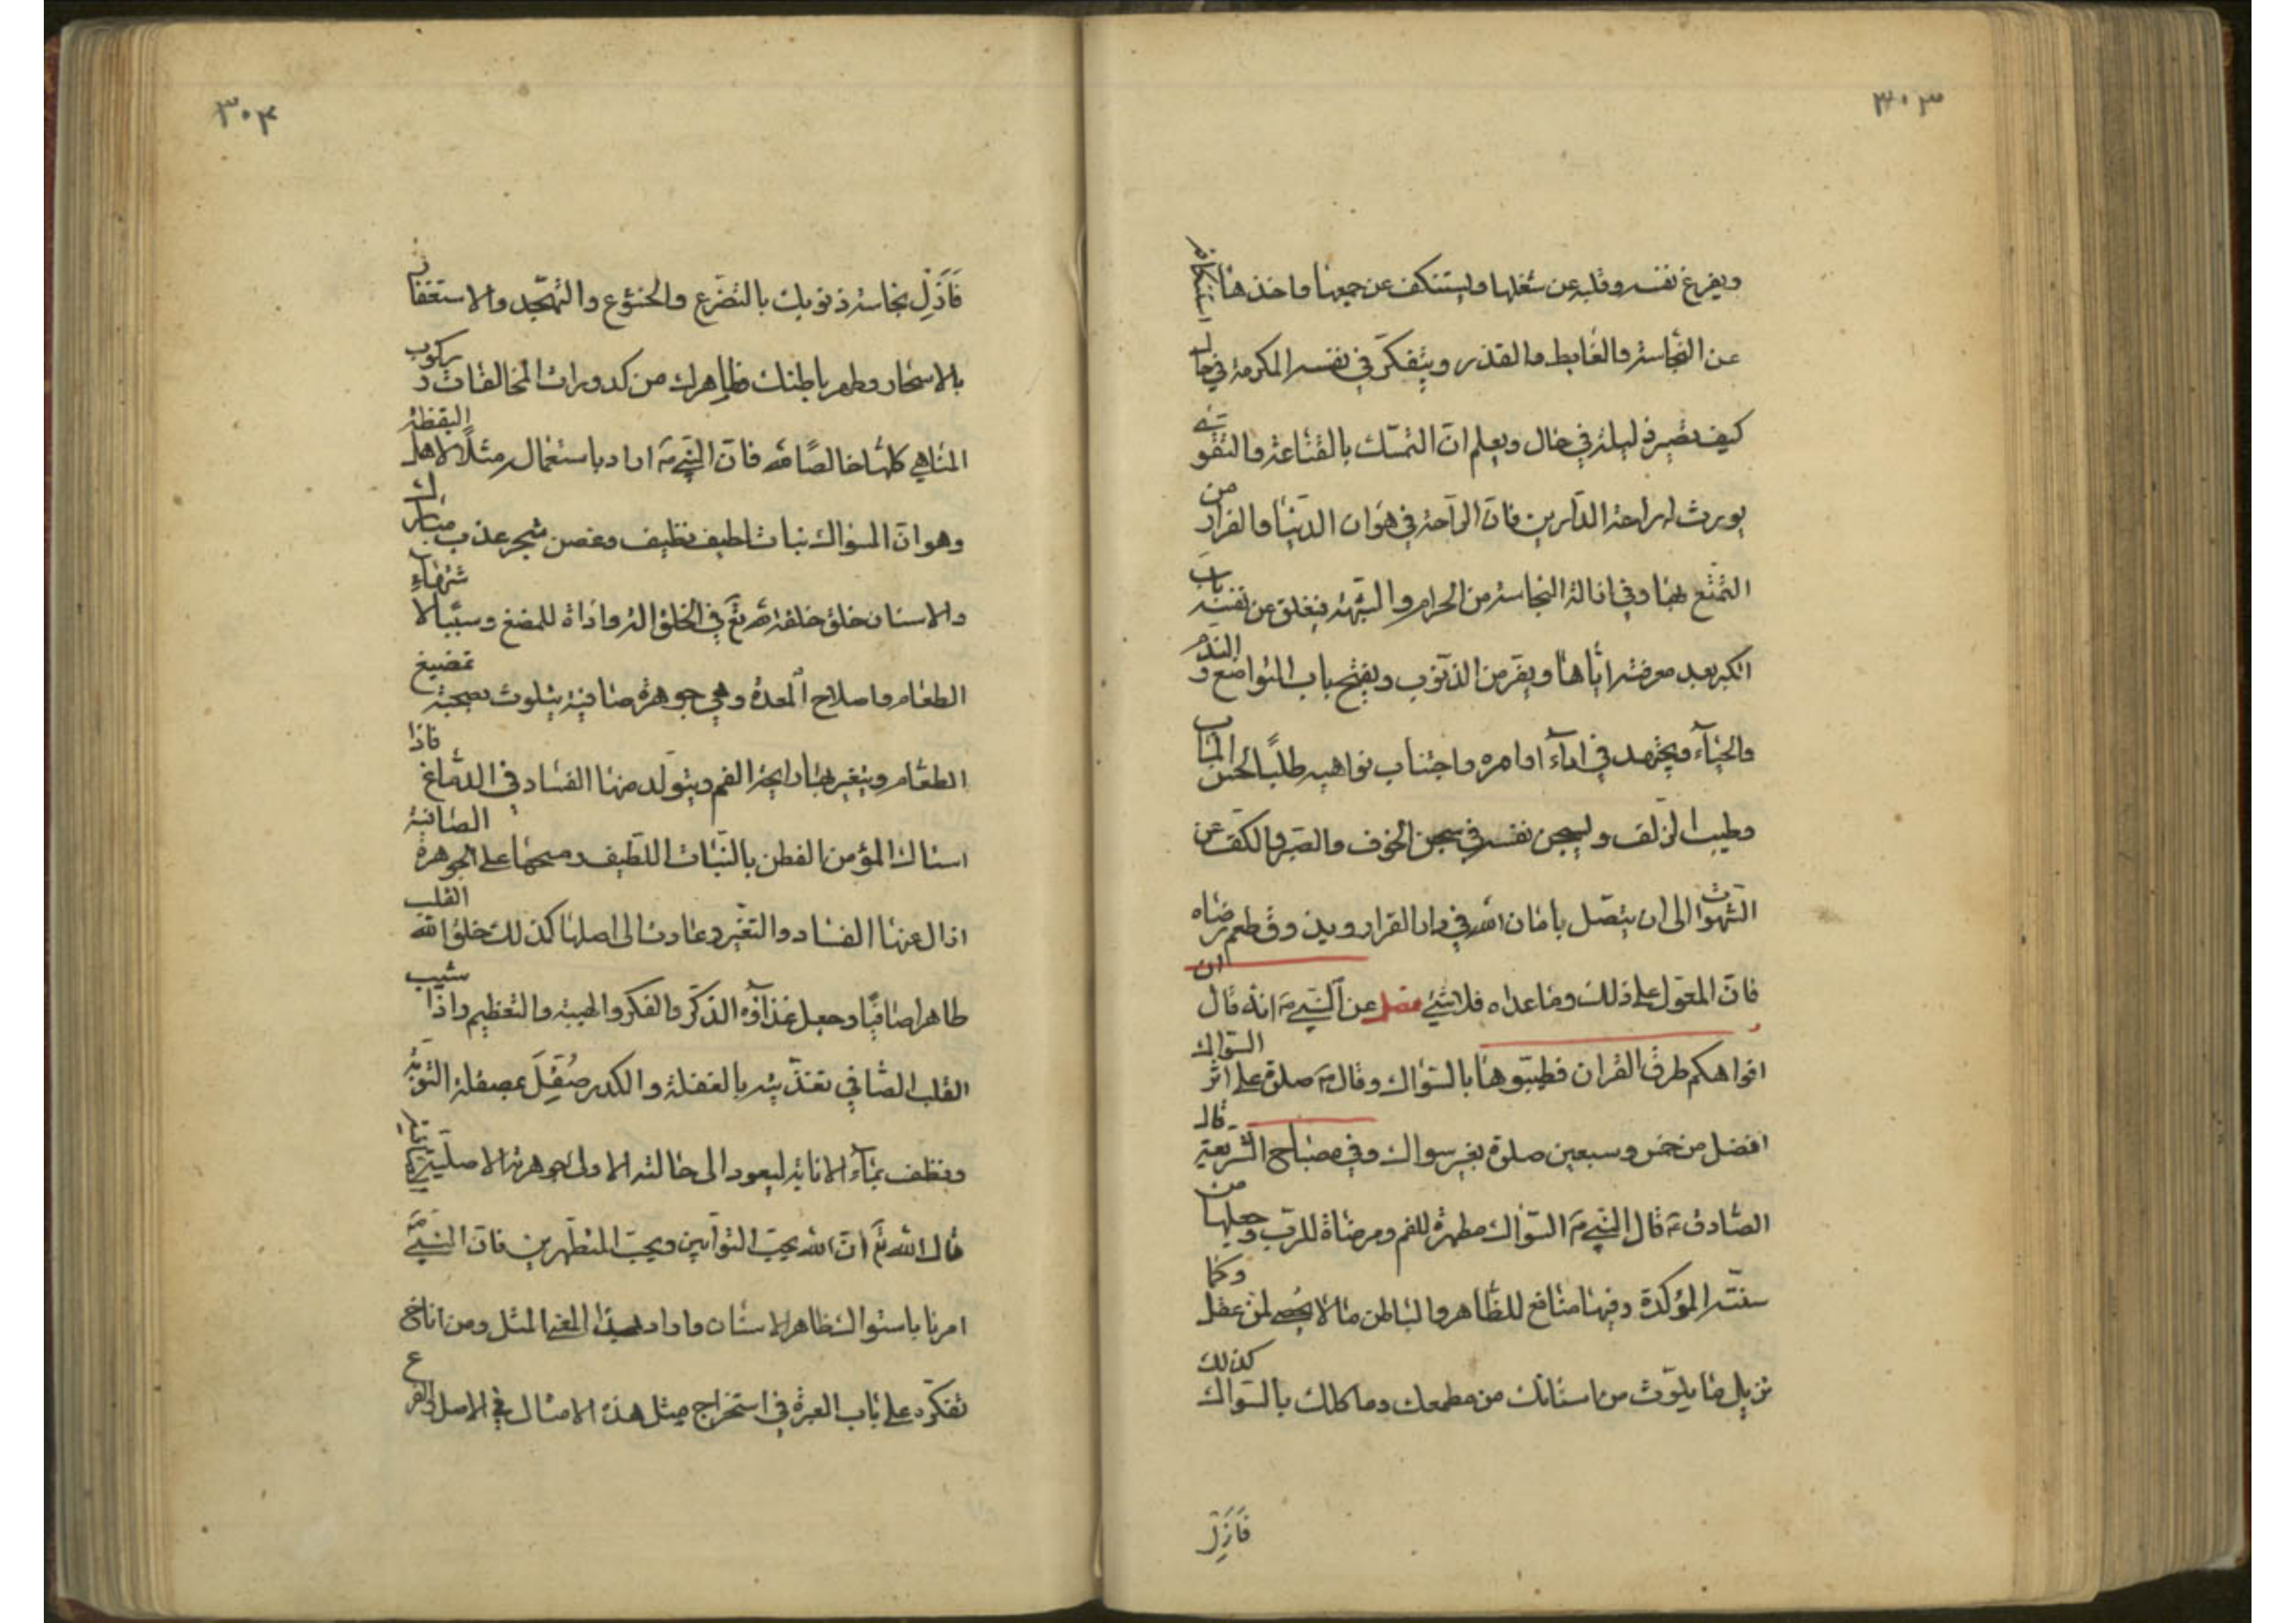 ٣٠٣
ويفرغ نفسه وقلبه عن شغلها ويستنكف عن جمعها واخذها استنكافه
عن النجاسة والغايط والقذر ويتفكر في نفسه المكرمة في حال
كيف تصير ذليلة في حال ويعلم ان التمسك بالقناعة والتقوى
يورث له راحة الدارين فان الراحة في هوان الدنيا والفراغ من
التمتع بها وفي ازالة النجاسة من الحرام والشبهة فيغلق عن نفسه باب
الكبر بعد معرفته اياها ويفر من الذنوب ويفتح باب التواضع والندم
والحياء ويجتهد في اداء اوامره واجتناب نواهيه طلبا لحسن المآب
وطيب الزلف ويسجن نفسه في سجن الخوف والصبر والكف عن
الشهوات الى ان يتصل بامان الله في دار القرار ويذوق طعم رضاه
فان المعول على ذلك وما عداه فلا شيء فصل عن النبي ص انه قال ان
افواهكم طرق القران فطيبوها بالسواك وقال ص صلوة على اثر السواك
افضل من خمس وسبعين صلوة بغير سواك وفي مصباح الشريعة قال
الصادق ع قال النبي ص السواك مطهرة للفم ومرضاة للرب وجعلها من
سنته المؤكدة وفيها منافع للظاهر والباطن ما لا يحصى لمن عقل وكما
تزيل ما يلوث من اسنانك من مطعمك وماكلك بالسواك كذلك
فَاَزِلْ
٣٠٤
فَاَزِلْ نجاسة ذنوبك بالتضرع والخشوع والتهجد والاستغفار
بالاسحار وطهر باطنك وظاهرك من كدورات المخالفات وركوب
المناهي كلها خالصا لله فان النبي ص اراد باستعماله مثلا لاهل اليقظة
وهو ان السواك نبات لطيف نظيف وغصن شجر عذب مبارك
والاسنان خلق خلقه الله تع في الخلق الة واداة للمضغ وسببا لاشتهاء
الطعام واصلاح المعدة وهي جوهرة صافية يتلوث بصحبة تمضيغ
الطعام ويتغير بها رايحة الفم ويتولد منها الفساد في الدماغ فاذا
استاك المؤمن الفطن بالنبات اللطيف ومسحها على الجوهرة الصافية
ازال عنها الفساد والتغير وعادت الى اصلها كذلك خلق الله القلب
طاهرا صافيا وجعل غذاؤه الذكر والفكر والهيبة والتعظيم واذا شيب
القلب الصافي بتغذيته بالغفلة والكدر صُقِلَ بمصقلة التوبة
ونظف بماء الانابة ليعود الى حالته الاولى وجوهرته الاصلية
قال الله تع ان الله يحب التوابين ويحب المتطهرين فان النبي ص
امرنا باستواك ظاهر الاسنان واراد هذا المعنى المثل ومن اناخ
تفكره على باب العبرة في استخراج مثل هذه الامثال في الاصل والفرع